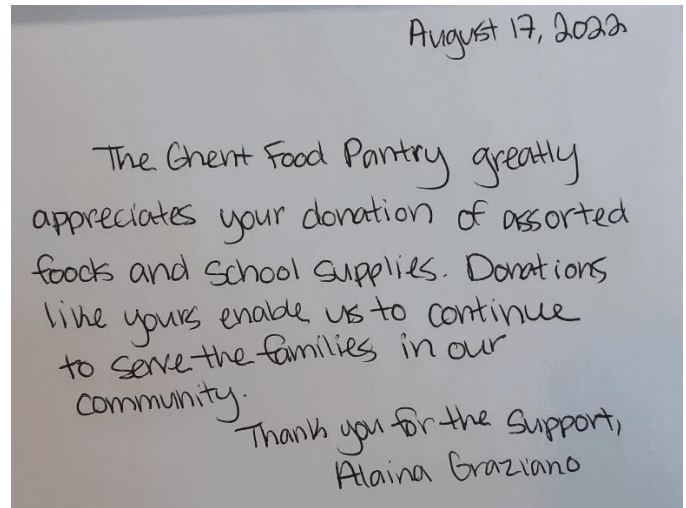 August 17, 2022
The Ghent Food Pantry greatly
appreciates your donation of assorted
foods and school supplies. Donations
like yours enable us to continue
to serve the families in our
community.
Thank you for the support,
Alaina Graziano